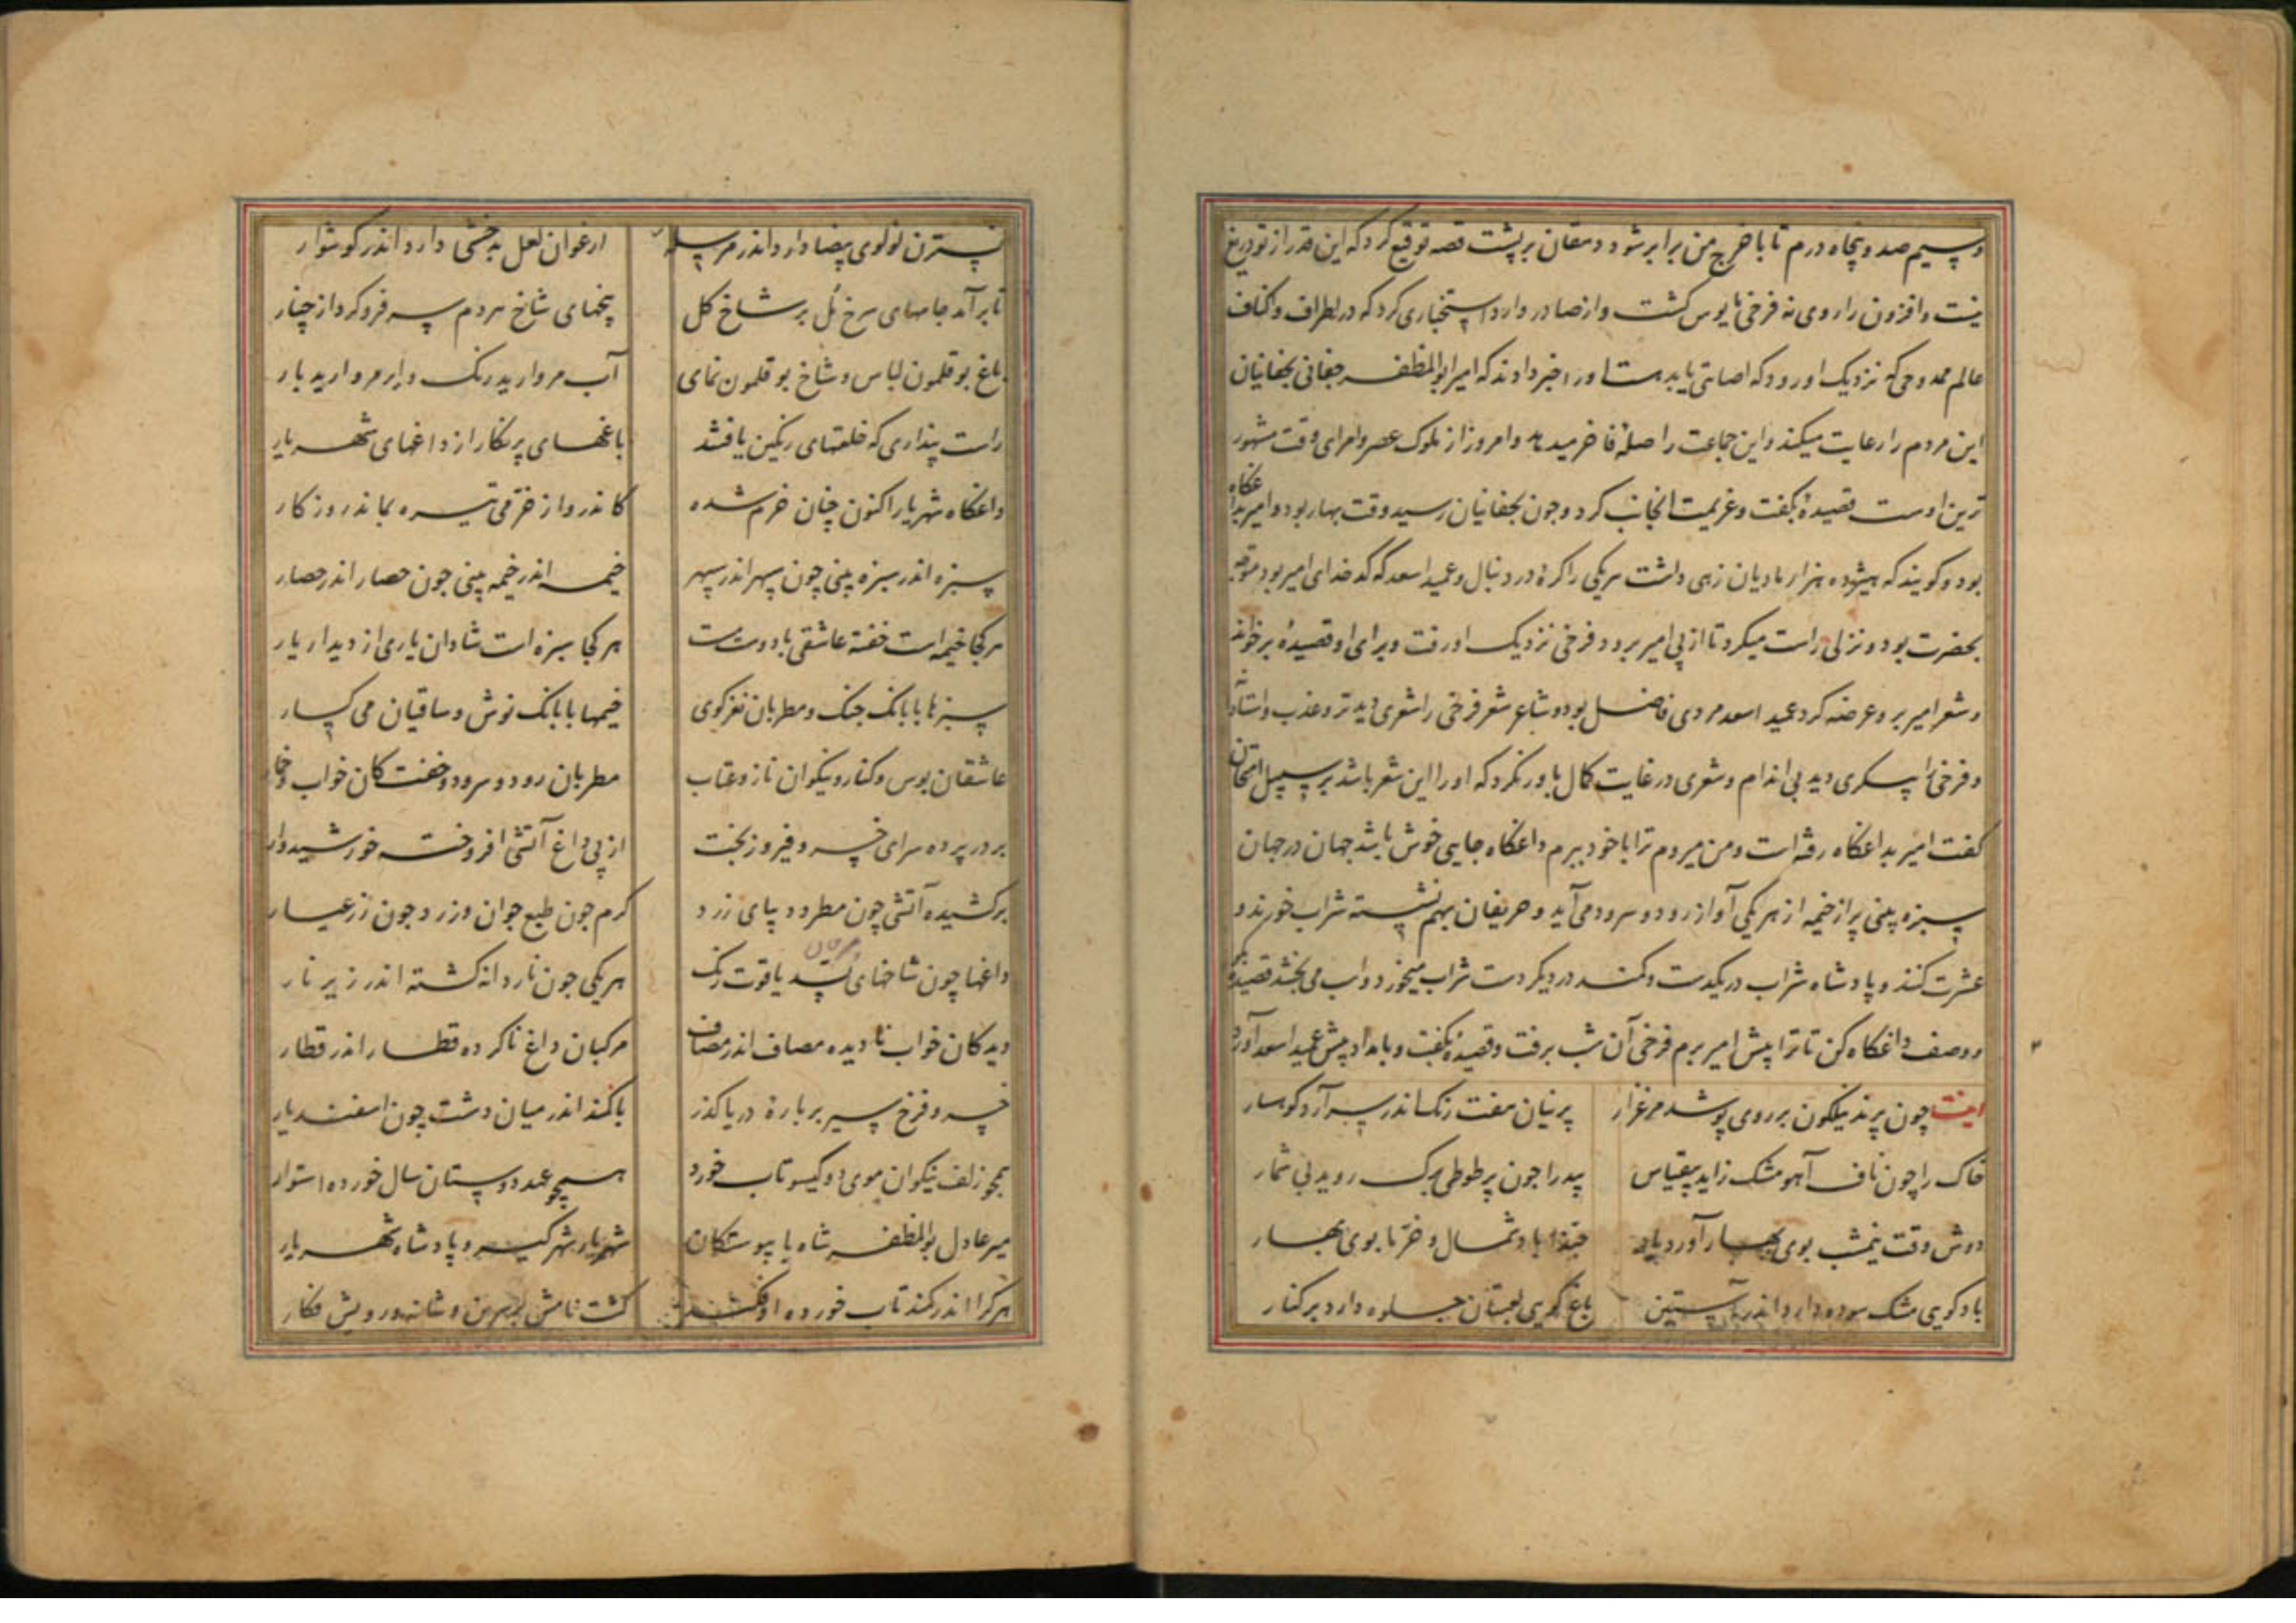 و سیم صد و پنجاه درم تا با خرج من برابر شود دهقان بر پشت قصه توقیع کرد که این قدر از تو دریغ
نیست و افزون را روی نه فرخی مایوس گشت و از صادر و وارد استخباری کرد که در اطراف و اکناف
عالم ممدوحی که نزدیک او رود که اصابتی یابد او را خبر دادند که امیر ابوالمظفر چغانی بچغانیان
این مردم را رعایت میکند و این جماعت را صلهٔ فاخر میدهد و امروز از ملوک عصر و امرای وقت مشهور
ترین اوست قصیدهٔ بگفت و عزیمت آنجانب کرد و چون بچغانیان رسید وقت بهار بود و امیر بداغگاه
بود و گویند که هیژده هزار مادیان زهی داشت هر یکی را کرهٔ در دنبال و عمید اسعد که کدخدای امیر بود
بحضرت بود و نزلی راست میکرد تا از پی امیر برود فرخی نزدیک او رفت و برای او قصیدهٔ برخواند
و شعر امیر برو عرضه کرد عمید اسعد مردی فاضل بود و شاعر شعر فرخی را شعری دید تر و عذب
و فرخی را پسکری دید بی اندام و شعری در غایت کمال باور نکرد که او را این شعر باشد بر سبیل امتحان
گفت امیر بداغگاه رفته است و من میروم ترا با خود ببرم داغگاه جایی خوش باشد جهان در جهان
سبزه بینی پر از خیمه از هر یکی آواز رود و سرود می‌آید و حریفان بهم نشسته شراب خورند و
عشرت کنند و پادشاه شراب در یکدست و کمند در دیگر دست شراب میخورد و اسب می بخشد قصیدهٔ
در وصف داغگاه کن تا ترا پیش امیر برم فرخی آن شب برفت و قصیدهٔ بگفت و بامداد پیش عمید اسعد آورد
اینست چون پرند نیلگون بر روی پوشد مرغزار پرنیان هفت رنگ اندر سر آرد کوهسار
خاک را چون ناف آهو مشک زاید بیقیاس بید را چون پر طوطی برگ روید بی شمار
دوش وقت نیمشب بوی بهار آورد باد حبذا باد شمال و خرما بوی بهار
باد گویی مشک سوده دارد اندر آستین باغ گویی لعبتان جلوه دارد بر کنار
نسترن لولوی بیضا دارد اندر مرسله ارغوان لعل بدخشی دارد اندر گوشوار
تا برآمد جامهای سرخ مل بر شاخ گل پنجهای شاخ مردم سر فرو کرد از چنار
باغ بوقلمون لباس و شاخ بوقلمون نمای آب مروارید رنگ و ابر مروارید بار
راست پنداری که خلعتهای رنگین یافتند باغهای پر نگار از داغهای شهریار
داغگاه شهریار اکنون چنان خرم شده کاندرو از خرمی تیره بماند روزگار
سبزه اندر سبزه بینی چون سپهر اندر سپهر خیمه اندر خیمه بینی چون حصار اندر حصار
هر کجا خیمه است خفته عاشقی با دوست مست هر کجا سبزه است شادان یاری از دیدار یار
سبزها با بانگ چنگ و مطربان نغزگوی خیمها با بانگ نوش و ساقیان می گسار
عاشقان بوس و کنار و نیکوان ناز و عتاب مطربان رود و سرود و خفتگان خواب و خمار
بر در پرده سرای خسرو فیروز بخت از پی داغ آتشی افروخته خورشیدوار
برکشیده آتشی چون مطرد دیبای زرد گرم چون طبع جوان و زرد چون زر عیار
داغها چون شاخهای بسد یاقوت رنگ هر یکی چون ناردانه گشته اندر زیر نار
دیدگان خواب نادیده مصاف اندر مصاف مرکبان داغ ناکرده قطار اندر قطار
خسرو فرخ سیر بر بارهٔ دریا گذر با کمند اندر میان دشت چون اسفندیار
همچو زلف نیکوان موی دو گیسو تاب خورد همچو عهد دوستان سال خورده استوار
میر عادل بوالمظفر شاه با پیوستگان شهریار شهرگیر و پادشاه شهریار
هر کرا اندر کمند تاب خورده افکند گشت نامش بر سرین و شانه و رویش نگار